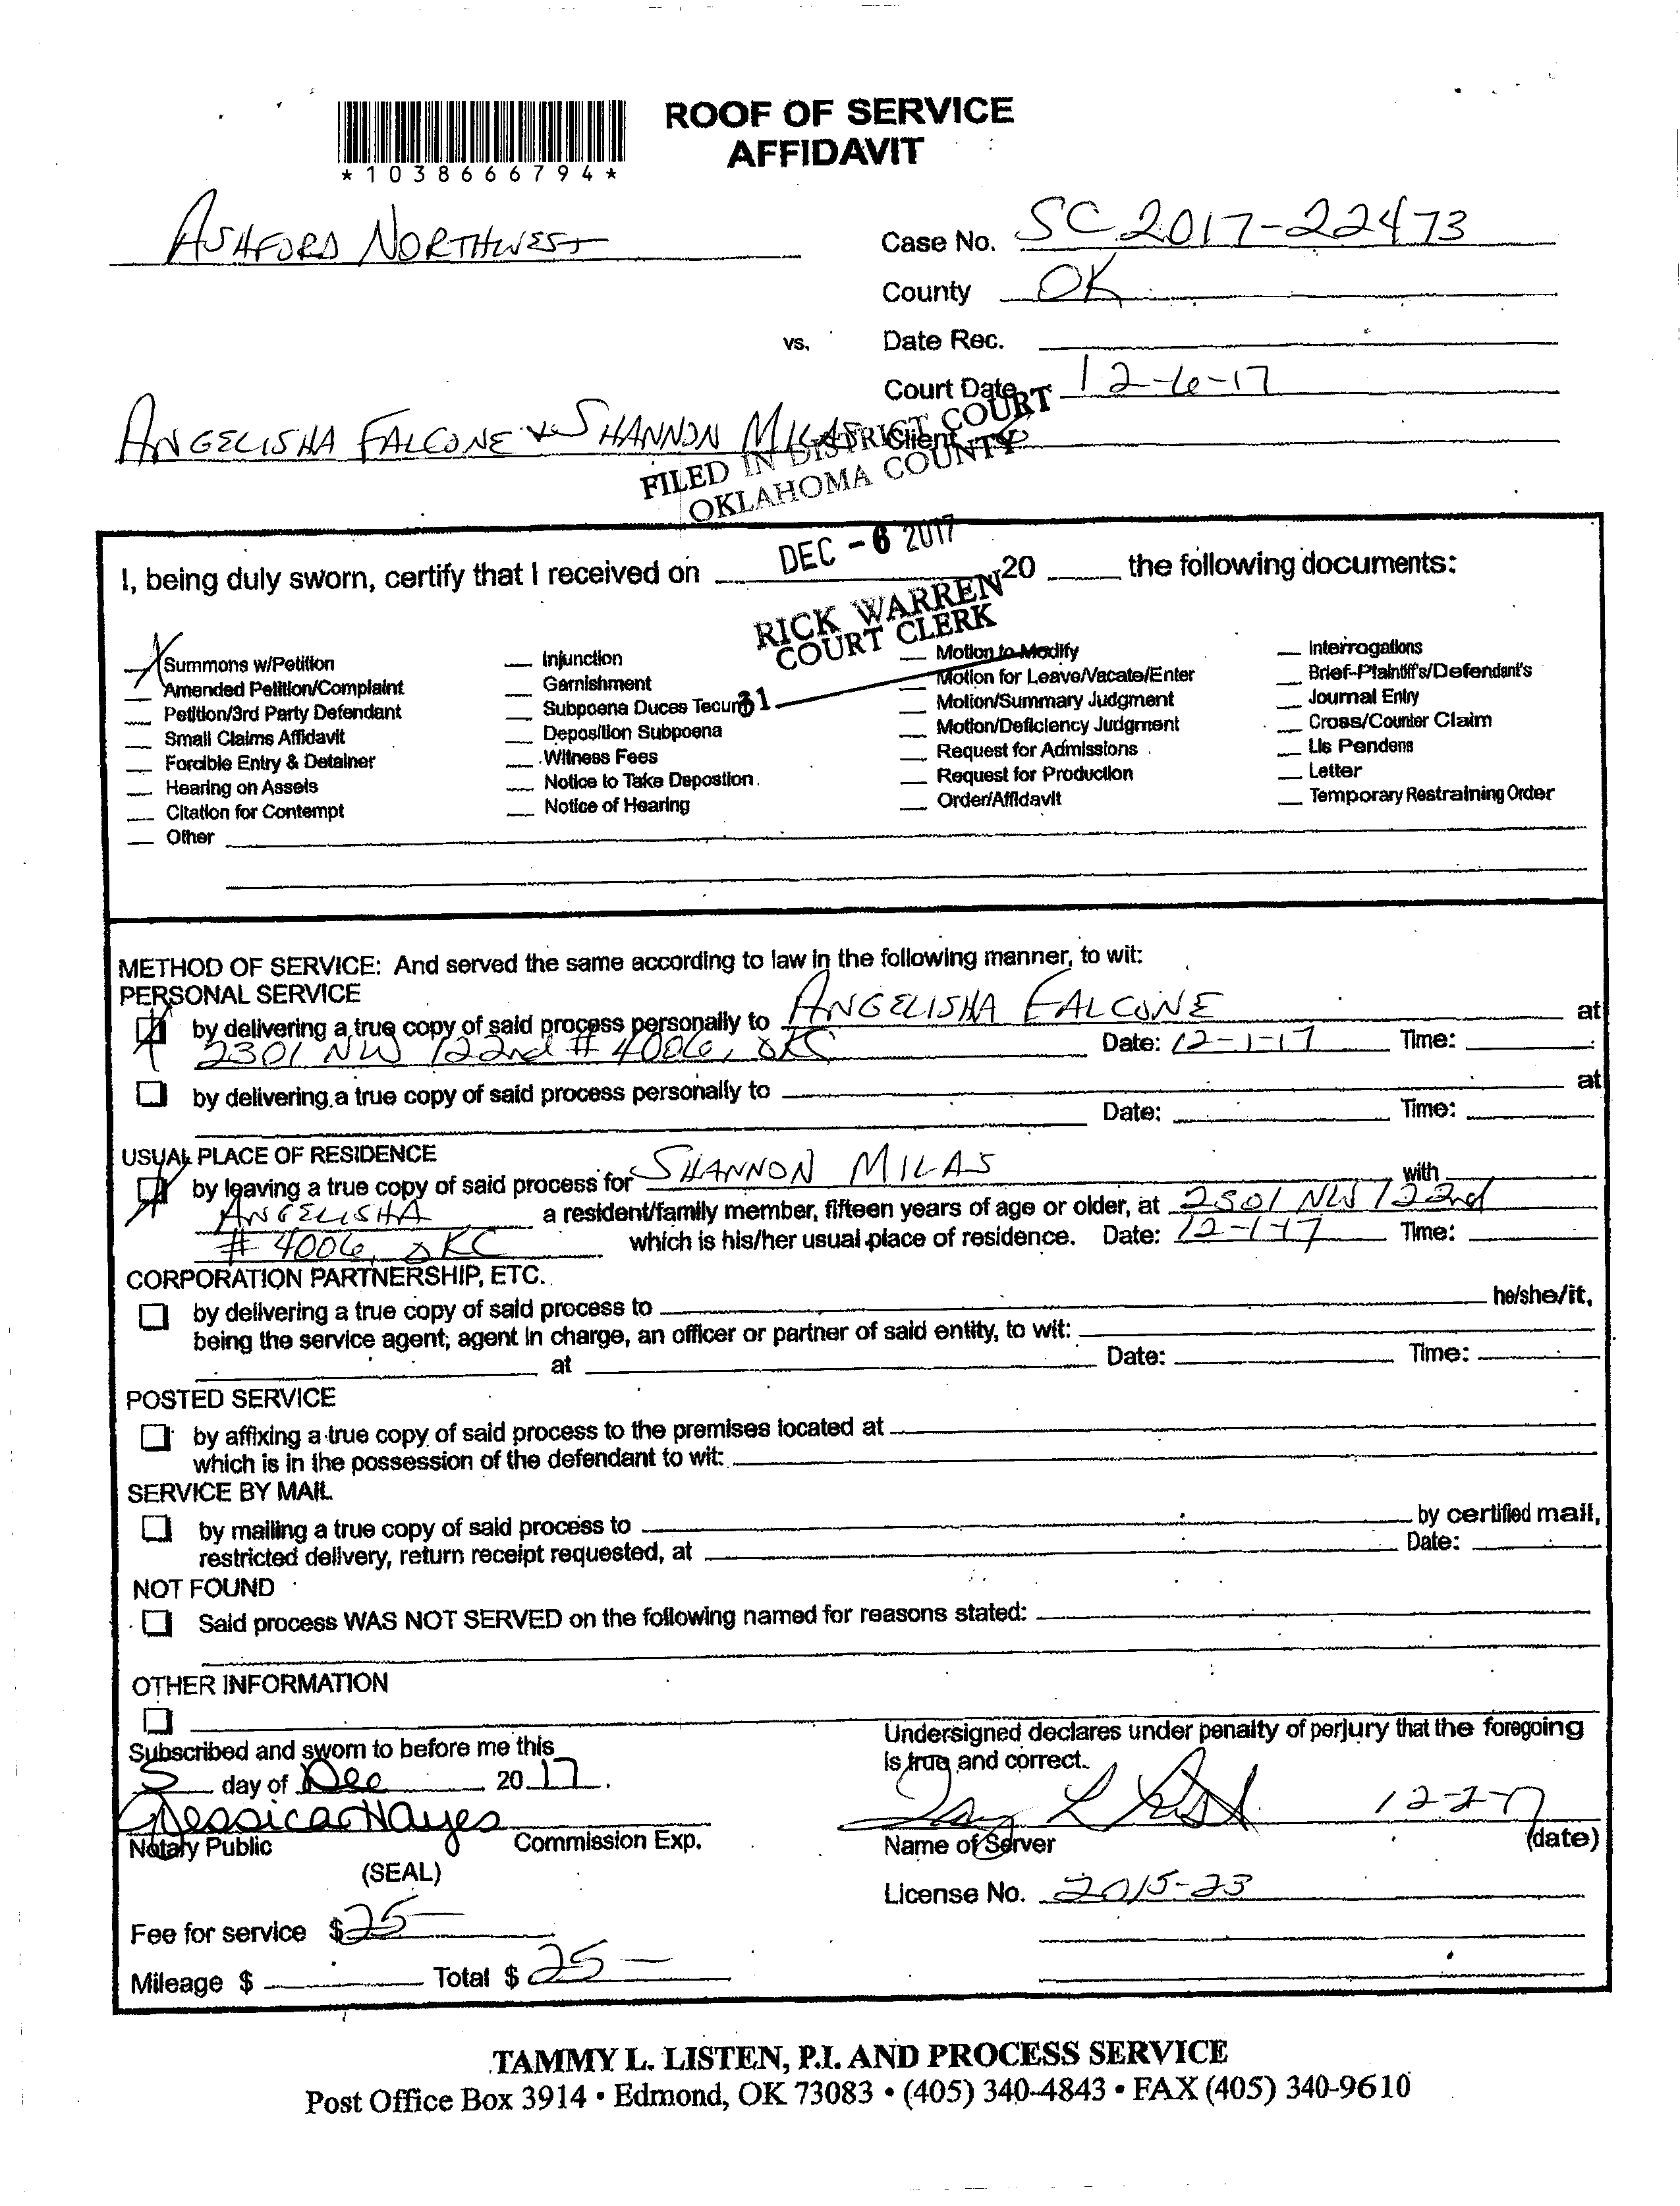 ROOF OF SERVICE
AFFIDAVIT
*1038666794*
ASHFORD NORTHWEST
Case No. SC 2017-22473
County OK
vs.
Date Rec.
Court Date 12-6-17
ANGELISHA FALCONE & SHANNON MILAS
Client
FILED IN DISTRICT COURT
OKLAHOMA COUNTY
DEC - 6 2017
I, being duly sworn, certify that I received on 20 the following documents:
RICK WARREN
COURT CLERK
31
X Summons w/Petition
Amended Petition/Complaint
Petition/3rd Party Defendant
Small Claims Affidavit
Forcible Entry & Detainer
Hearing on Assets
Citation for Contempt
Other
Injunction
Garnishment
Subpoena Duces Tecum
Deposition Subpoena
Witness Fees
Notice to Take Depostion
Notice of Hearing
Motion to Modify
Motion for Leave/Vacate/Enter
Motion/Summary Judgment
Motion/Deficiency Judgment
Request for Admissions
Request for Production
Order/Affidavit
Interrogations
Brief-Plaintiff's/Defendant's
Journal Entry
Cross/Counter Claim
Lis Pendens
Letter
Temporary Restraining Order
METHOD OF SERVICE: And served the same according to law in the following manner, to wit:
PERSONAL SERVICE
by delivering a true copy of said process personally to ANGELISHA FALCONE at
2301 NW 122nd # 4006, OKC Date: 12-1-17 Time:
by delivering a true copy of said process personally to at
Date: Time:
USUAL PLACE OF RESIDENCE
by leaving a true copy of said process for SHANNON MILAS with
ANGELISHA a resident/family member, fifteen years of age or older, at 2301 NW 122nd
# 4006, OKC which is his/her usual place of residence. Date: 12-1-17 Time:
CORPORATION PARTNERSHIP, ETC.
by delivering a true copy of said process to he/she/it,
being the service agent, agent in charge, an officer or partner of said entity, to wit:
at Date: Time:
POSTED SERVICE
by affixing a true copy of said process to the premises located at
which is in the possession of the defendant to wit:
SERVICE BY MAIL
by mailing a true copy of said process to by certified mail,
restricted delivery, return receipt requested, at Date:
NOT FOUND
Said process WAS NOT SERVED on the following named for reasons stated:
OTHER INFORMATION
Subscribed and sworn to before me this
5 day of Dec 2017.
Jessica Hayes
Notary Public Commission Exp.
(SEAL)
Fee for service $25-
Mileage $ Total $25-
Undersigned declares under penalty of perjury that the foregoing
is true and correct.
12-2-17
Name of Server (date)
License No. 2015-23
TAMMY L. LISTEN, P.I. AND PROCESS SERVICE
Post Office Box 3914 • Edmond, OK 73083 • (405) 340-4843 • FAX (405) 340-9610